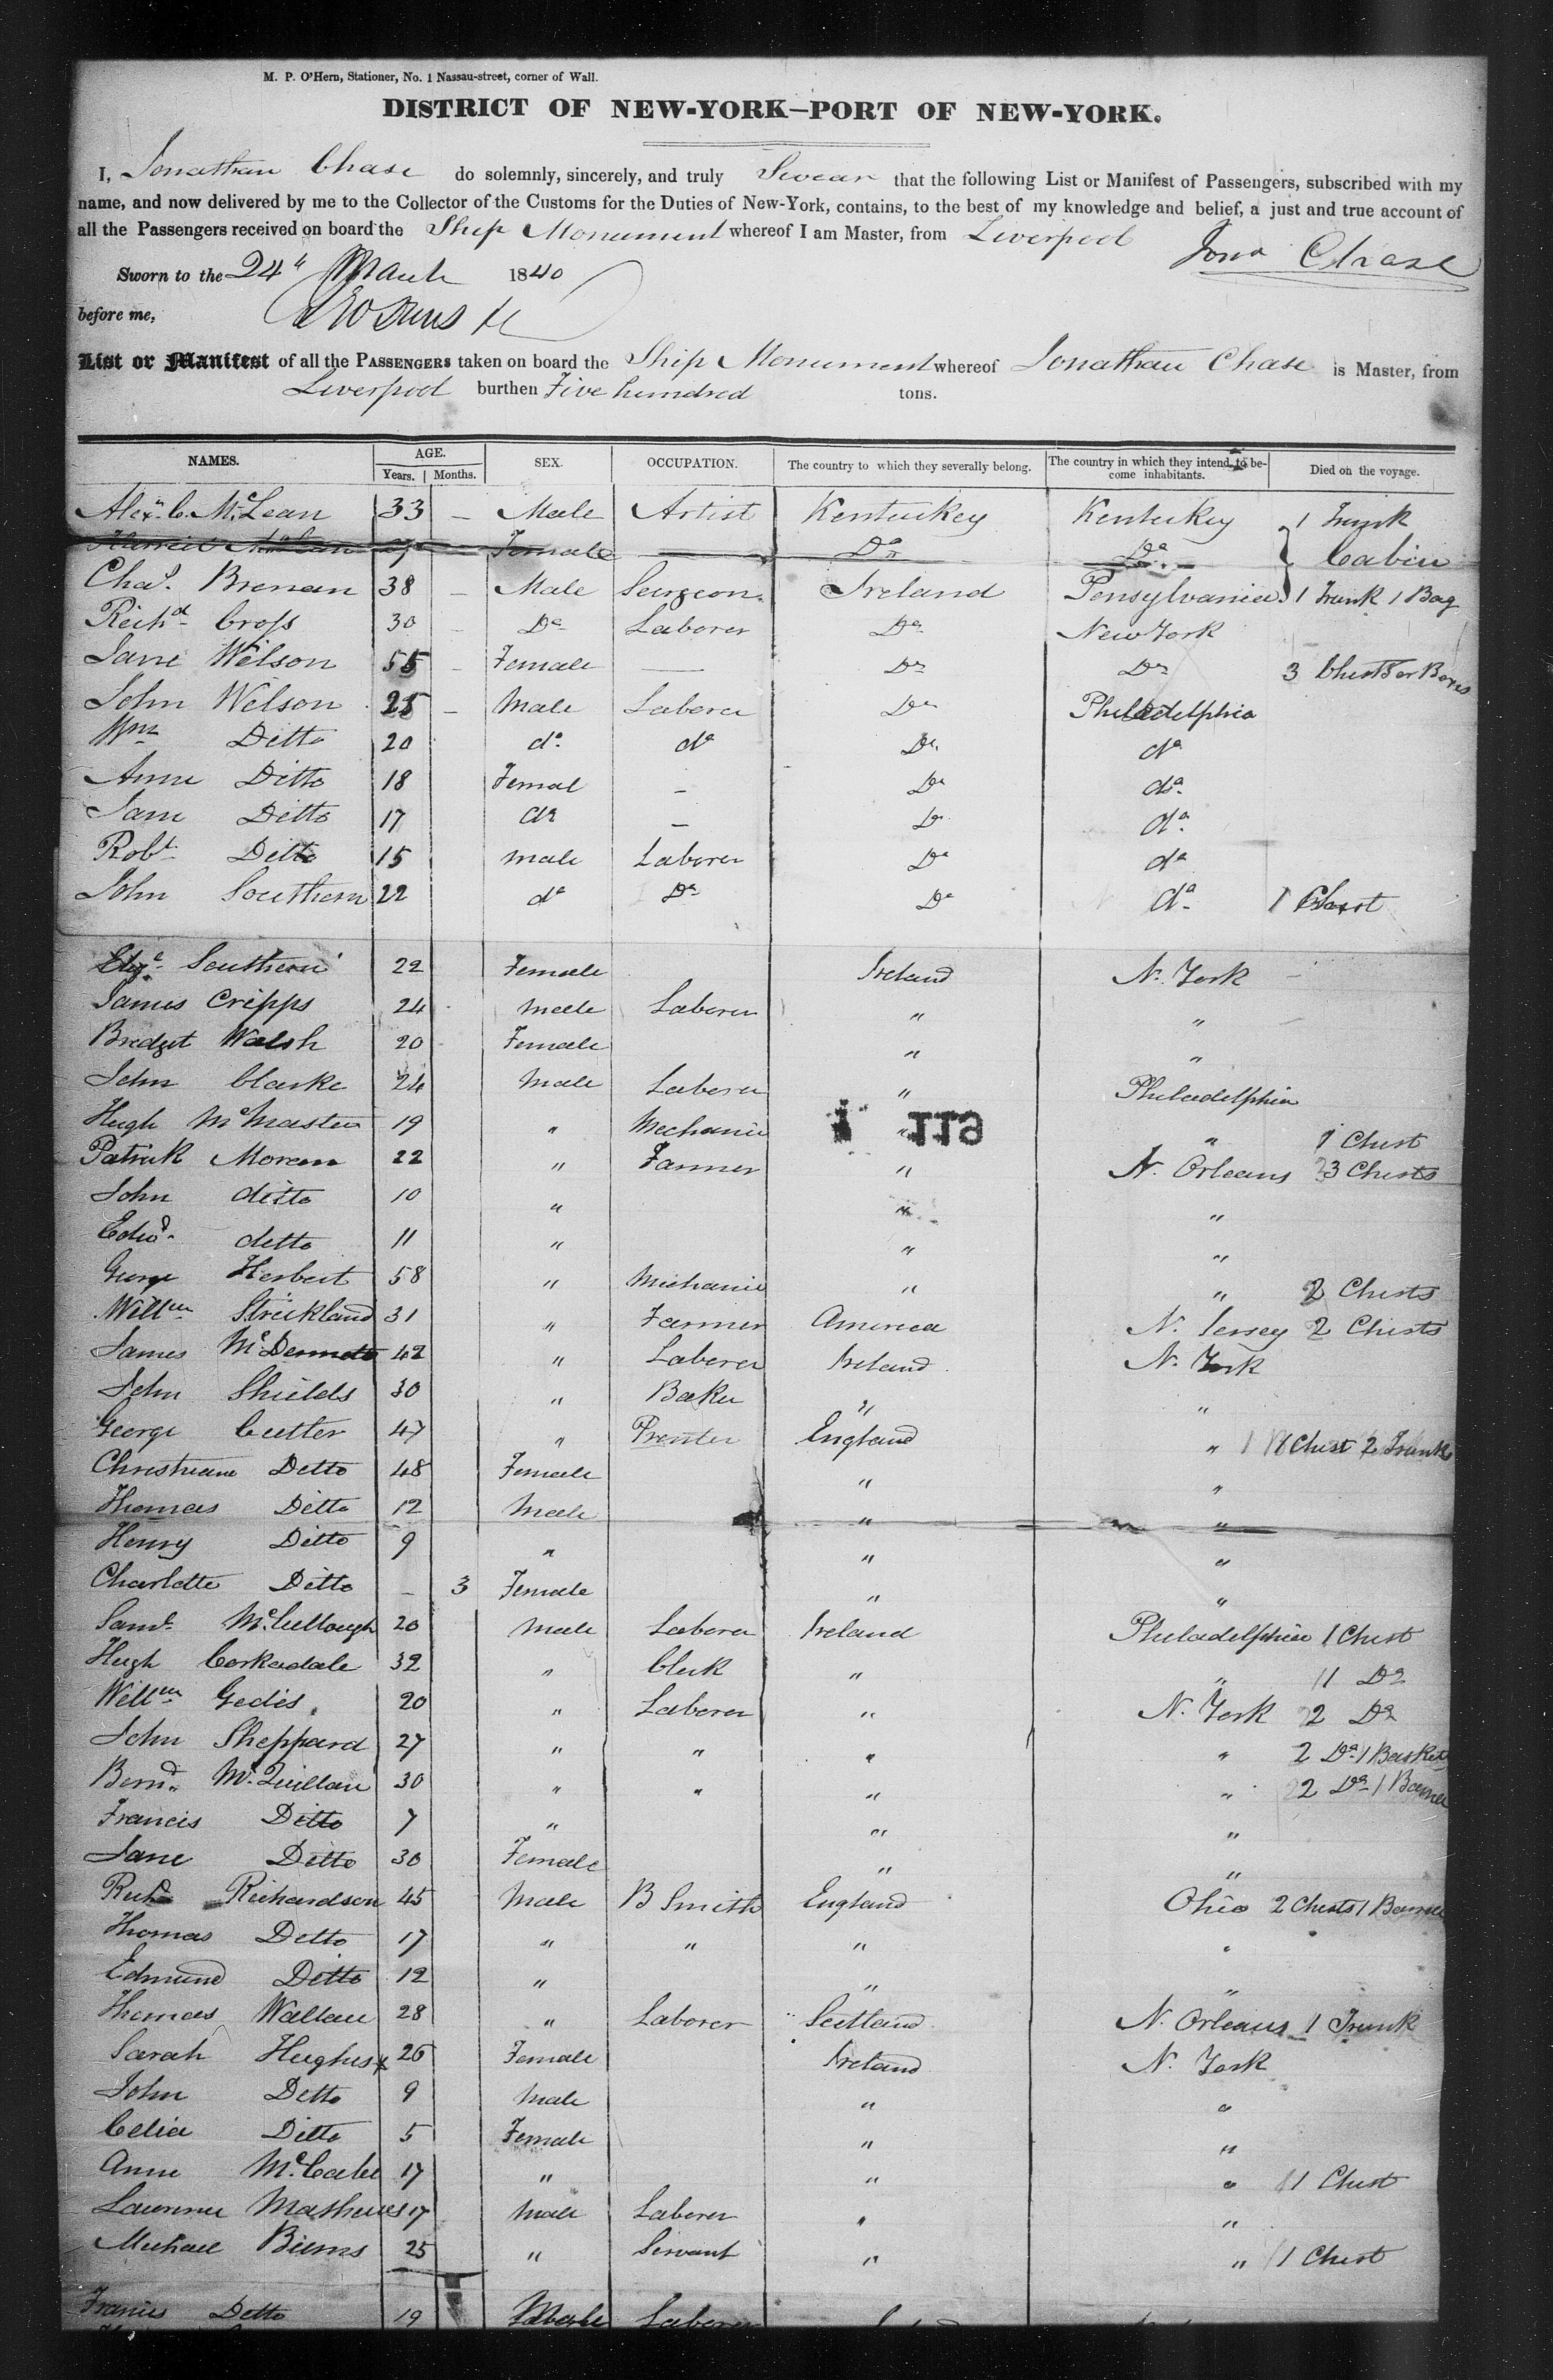 M. P. O'Hern, Stationer, No. 1 Nassau-street, corner of Wall.
DISTRICT OF NEW-YORK—PORT OF NEW-YORK.
I, Jonathan Chase do solemnly, sincerely, and truly Swear that the following List or Manifest of Passengers, subscribed with my
name, and now delivered by me to the Collector of the Customs for the Duties of New-York, contains, to the best of my knowledge and belief, a just and true account of
all the Passengers received on board the Ship Monument whereof I am Master, from Liverpool
Jona Chase
Sworn to the 24th March 1840
before me,
List or Manifest of all the PASSENGERS taken on board the Ship Monument whereof Jonathan Chase is Master, from
Liverpool burthen Five hundred tons.
NAMES. AGE. SEX. OCCUPATION. The country to which they severally belong. The country in which they intend to become inhabitants. Died on the voyage.
Years. Months.
Alexr. C. McLean 33 — Male Artist Kentuckey Kentuckey 1 Trunk
Harriet McLean Female — Do Do Cabin
Chas. Brenan 38 — Male Surgeon Ireland Pensylvania 1 Trunk 1 Bag
Richd Cross 30 — Do Laborer Do New York
Jane Wilson 55 — Female — Do Do 3 Chests or Boxes
John Wilson 25 — Male Laborer Do Philadelphia
Wm Ditto 20 do do Do do
Anne Ditto 18 Femal - Do do
Jane Ditto 17 do - Do do
Robt Ditto 15 male Laborer Do do
John Southern 22 do Do Do do 1 Chest
Eliza Southern 22 Female Ireland N. York
James Cripps 24 Male Laborer " "
Bridget Walsh 20 Female " "
John Clarke 24 Male Laborer " Philadelphia
Hugh McMaster 19 " Mechanic " " 1 Chest
119
Patrick Moran 22 " Farmer " N. Orleans 3 Chests
John ditto 10 " " "
Edwd ditto 11 " " "
George Herbert 58 " Mechanic " " 2 Chests
Willm Strickland 31 " Farmer America N. Jersey 2 Chests
James McDermott 42 " Laborer Ireland N. York
John Shields 30 " Baker " "
George Cutler 47 " Prenter England " 1 Chest 2 Trunks
Christiana Ditto 48 Female " "
Thomas Ditto 12 Male " "
Henry Ditto 9 " " "
Charlotte Ditto — 3 Female " "
Saml McCullough 20 Male Laborer Ireland Philadelphia 1 Chest
Hugh Corkadale 32 " Clerk " " 1 Do
Willm Gedis 20 " Laborer " N. York 2 Do
John Sheppard 27 " " " " 2 Do 1 Basket
Bernd McQuillan 30 " " " " 2 Do 1 Barrel
Francis Ditto 7 " " "
Jane Ditto 30 Female " "
Richd Richardson 45 Male B Smith England Ohio 2 Chests 1 Barrel
Thomas Ditto 17 " " " "
Edmund Ditto 12 " " "
Thomas Wallace 28 " Laborer Scotland N. Orleans 1 Trunk
Sarah Hughes 26 Female Ireland N. York
John Ditto 9 Male " "
Celia Ditto 5 Female " "
Anne McCabe 17 " " " 1 Chest
Lawrence Mathews 17 Male Laborer " "
Michael Biems 25 " Servant " " 1 Chest
Francis Ditto 19 Male Laborer